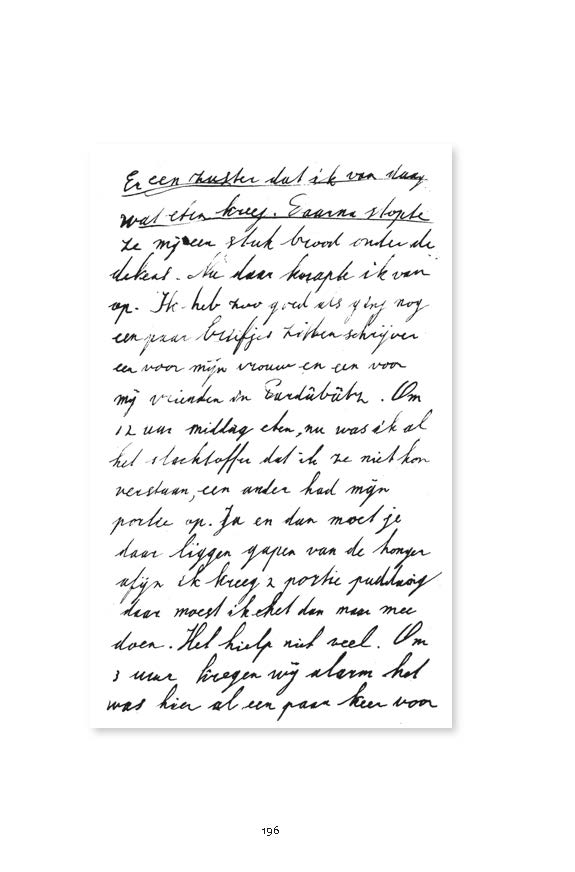 Er een zuster dat ik van daag
wat eten kreeg. Daarna stopte
ze mij een stuk brood onder de
dekens. Nu daar knapte ik van
op. Ik heb zoo goed als ging nog
een paar briefjes zitten schrijven
een voor mijn vrouw en een voor
mij vrienden in
Om
12 uur middag eten, nu was ik al
het slachtoffer dat ik ze niet kon
verstaan, een ander had mijn
portie op. Ja en dan moet je
daar liggen gapen van de honger
afijn ik kreeg 2 portie pudding
daar moest ik het dan maar mee
doen. Het hielp niet veel. Om
3 uur kregen wij alarm het
was hier al een paar keer voor
196